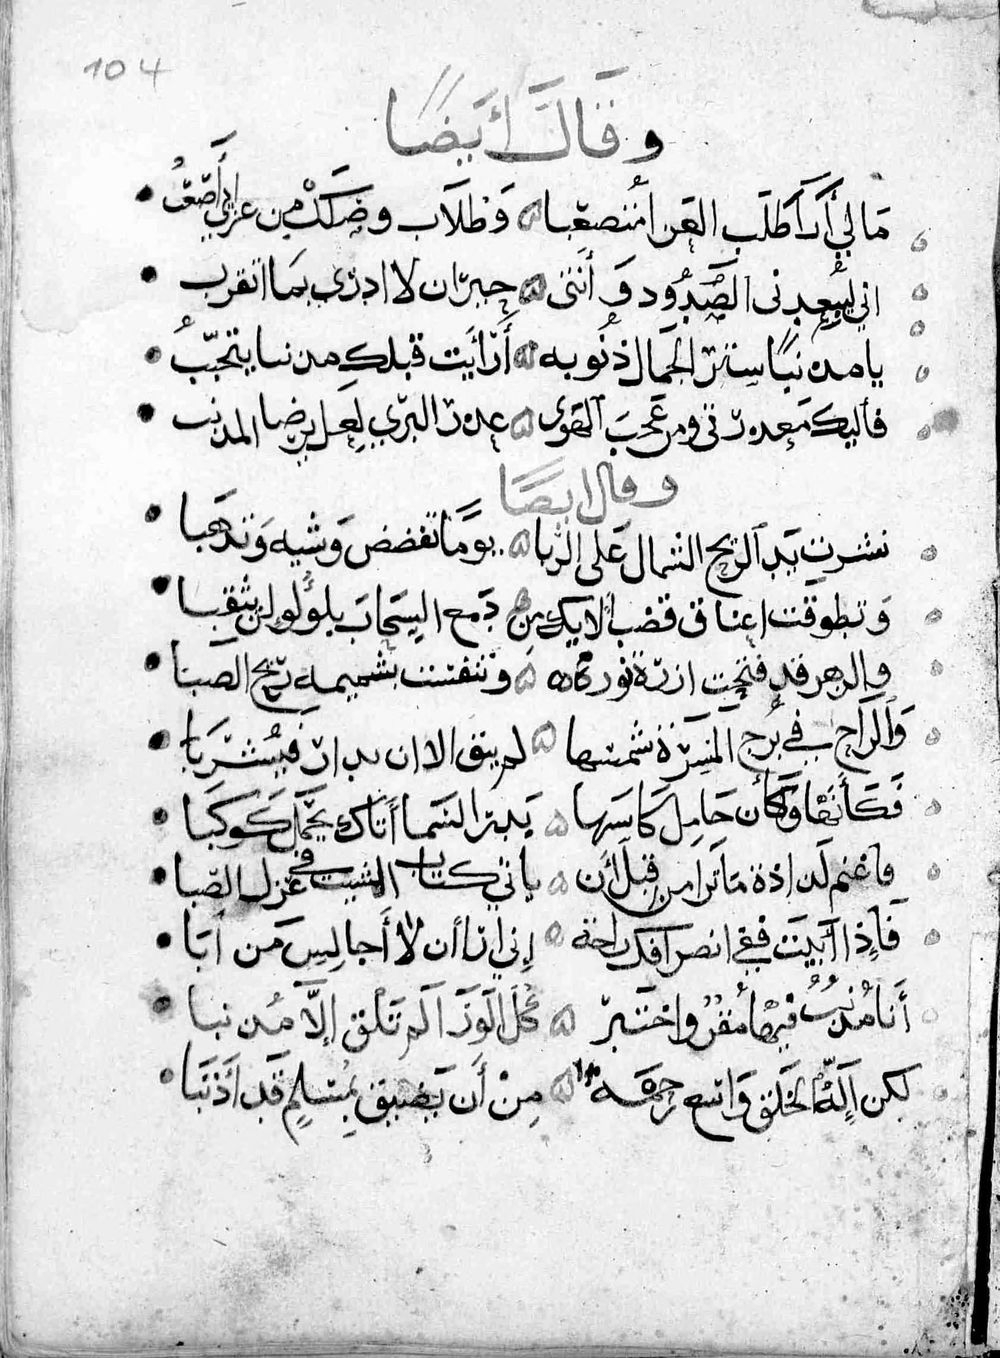 104
وقال أيضا
مالي أراك طلب العز امتصعبا وطلاب وصلك من عزائي أصعب
اني ليبعدني الصدود وأنثني حيران لا ادري بما اتقرب
يا مدنبا ستر الجمال ذنوبه أرأيت قبلك مدنبا يتجبب
فأليك معدرتي ومن عجب الهوى عدر البري لعل يرضا المدنب
وقال ايضا
نشرت يد الريح الشمال على الربا يوما تفضض وشيه وتدهبا
وتطوقت اعناق قضب الايك من دمع السحاب بلؤلو لن يثقبا
والزهر قد فتحت ازرة نوره وتنفست بشميمه ريح الصبا
والراح في برج المسرة شمسها لم يبق الا ان يدار فيشربا
فكأنها وكأن حامل كاسها بدر السما أتاك يحمل كوكبا
فاغنم لداذة ما ترا من قبل أن ياتي كتاب الشيب في عزل الصبا
فإذا أبيت ففي انصرافك راحة إني أنا أن لا أجالس من أبا
أنا مدنب فيها مقر واختبر كل الورا لم تلق إلا مدنبا
لكن إله الخلق واسع رحمة من أن يضيق بمسلم قد أذنبا